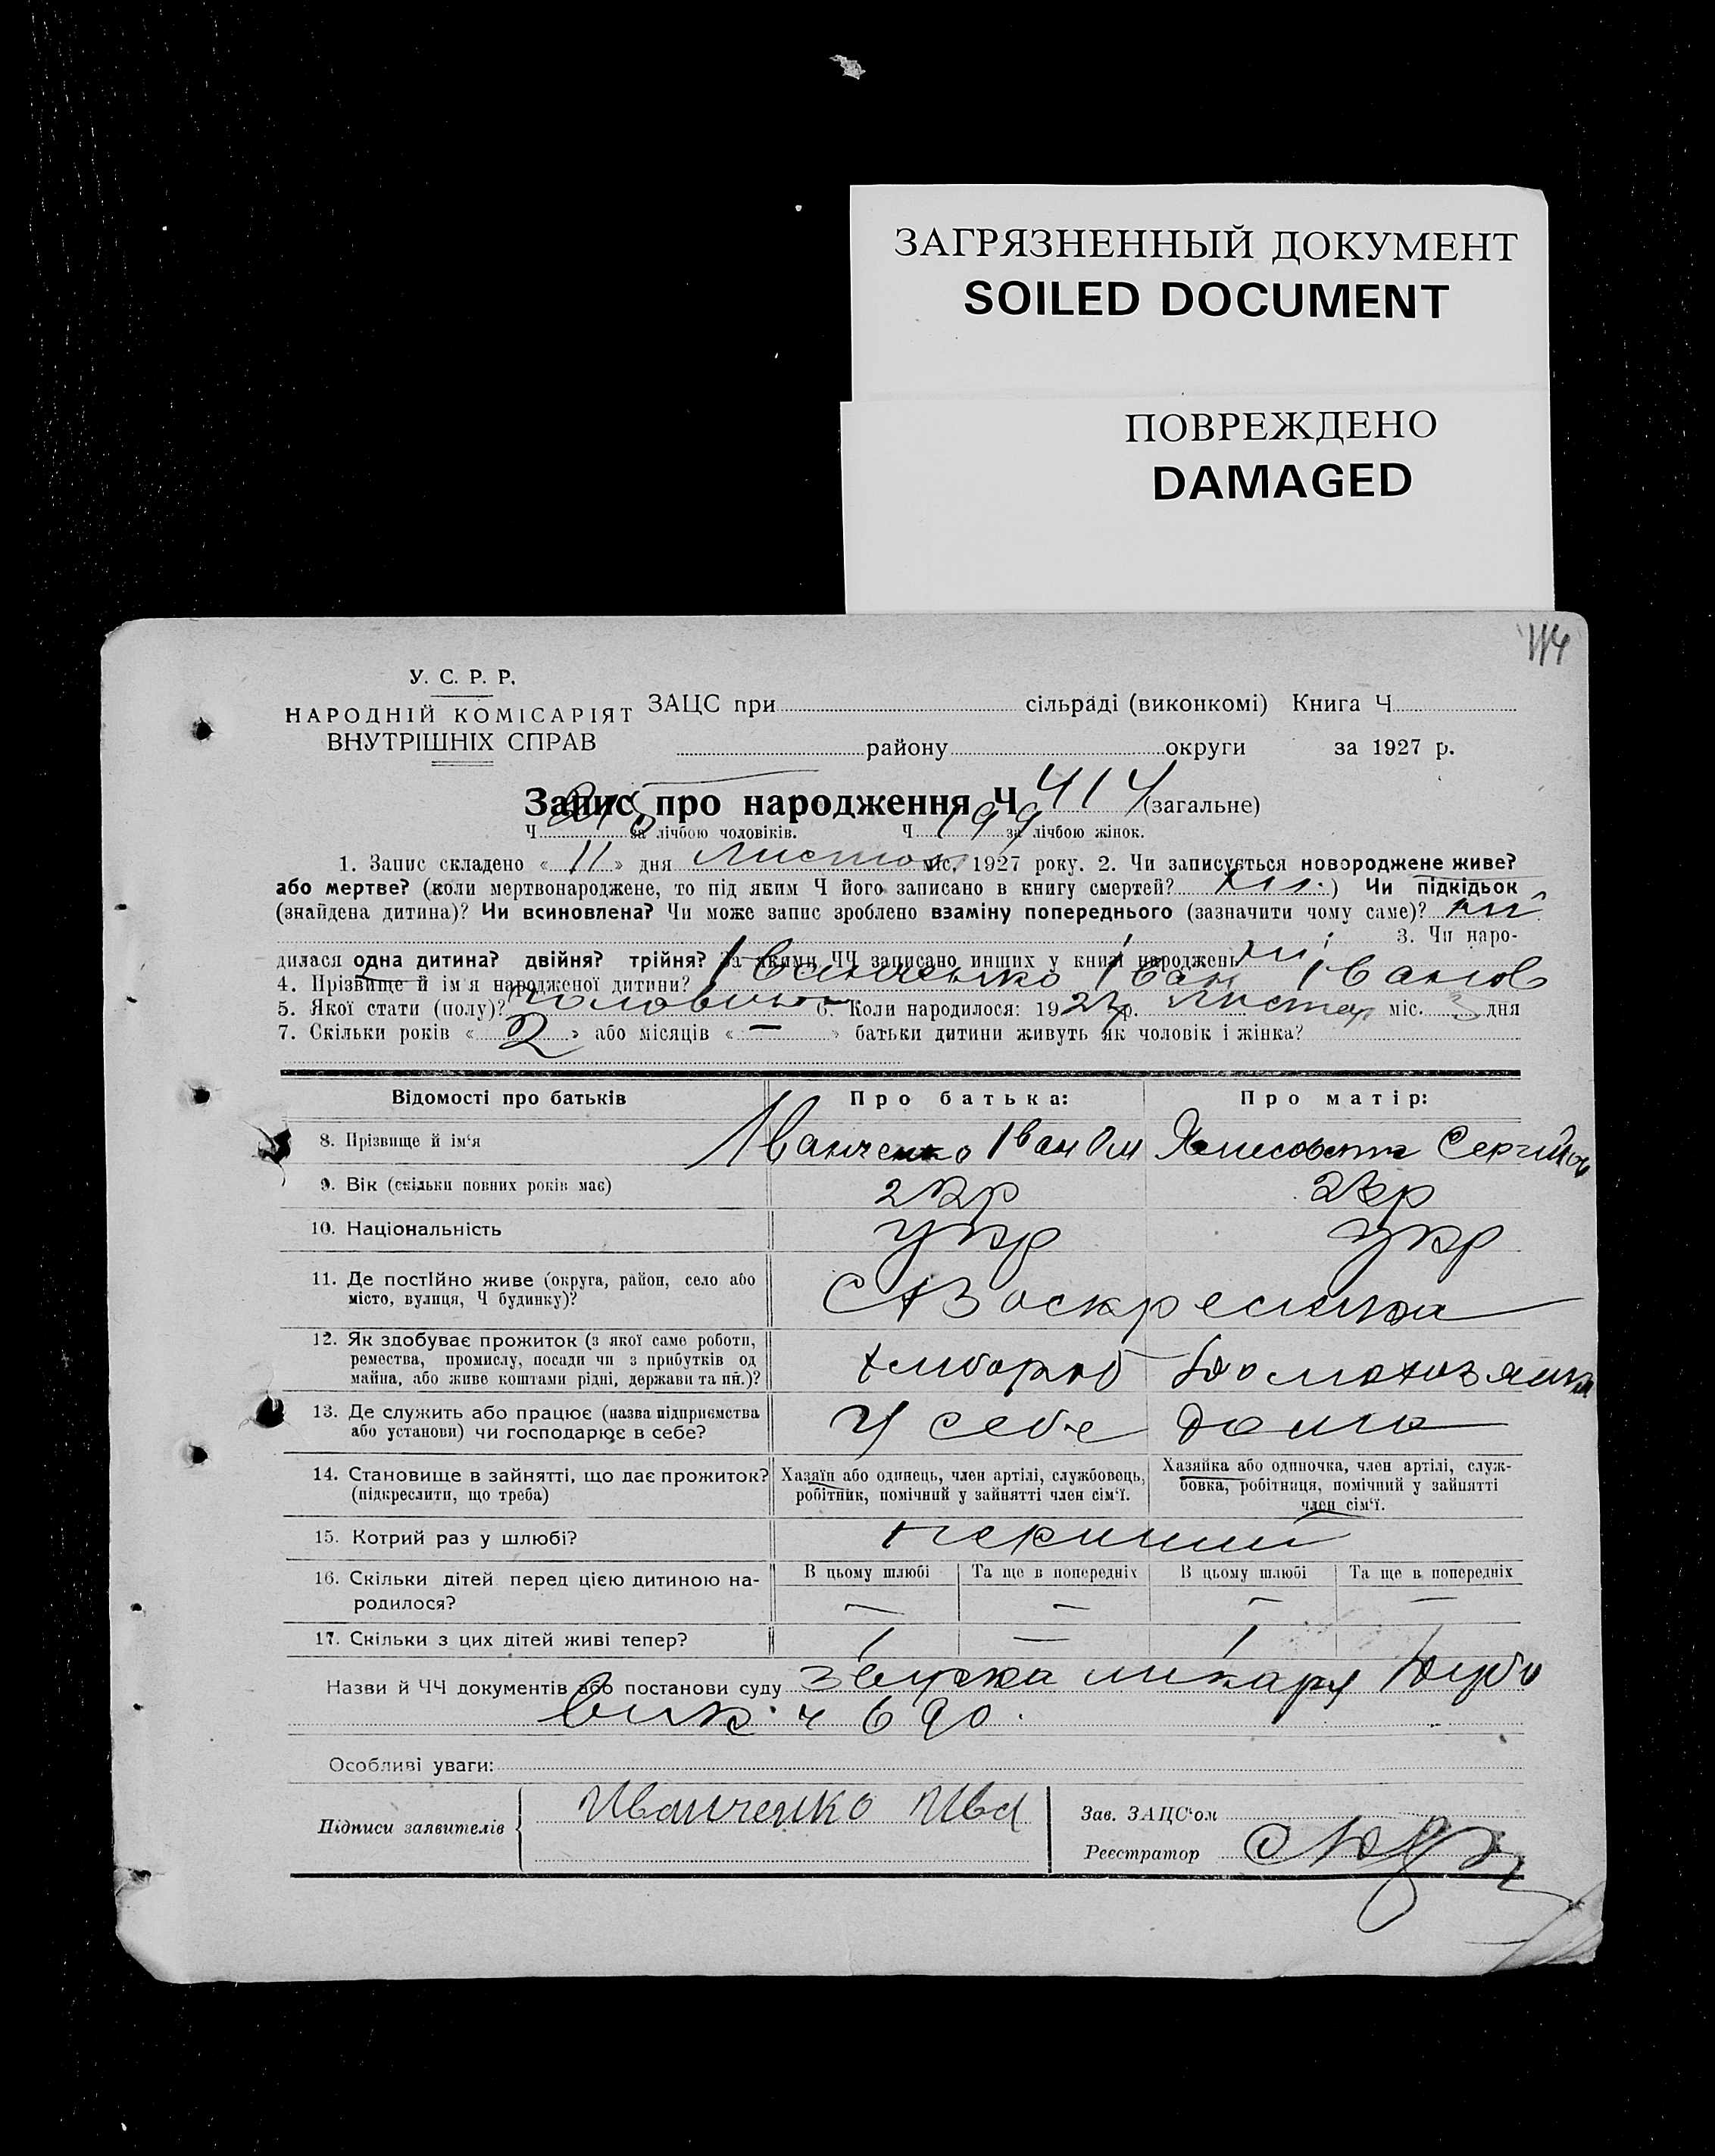 ЗАГРЯЗНЕННЫЙ ДОКУМЕНТ
SOILED DOCUMENT
ПОВРЕЖДЕНО
DAMAGED
У. С. Р. Р.
НАРОДНІЙ КОМІСАРІЯТ
ВНУТРІШНІХ СПРАВ
ЗАЦС при сільраді (виконкомі) Книга Ч
району округи за 1927 р.
Запис про народження Ч 414 (загальне)
Ч 215 за лічбою чоловіків. Ч 199 за лічбою жінок.
1. Запис складено « 11 » дня Листоп міс. 1927 року. 2. Чи записується новороджене живе?
або мертве? (коли мертвонароджене, то під яким Ч його записано в книгу смертей? ) Чи підкідьок
(знайдена дитина)? Чи всиновлена? Чи може запис зроблено взаміну попереднього (зазначити чому саме)? ні
3. Чи наро-
дилася одна дитина? двійня? трійня? За якими ЧЧ записано инших у книзі народжень ні
4. Прізвище й ім'я народженої дитини? Іванченко Іван Іванов
5. Якої стати (полу)? Чоловічої 6. Коли народилося: 1927 р. Листоп міс. 3 дня
7. Скільки років « 2 » або місяців « — » батьки дитини живуть як чоловік і жінка?
Відомості про батьків Про батька: Про матір:
8. Прізвище й ім'я Іванченко Іван Сергійов
9. Вік (скільки повних років має) 22р 23р
10. Національність укр укр
11. Де постійно живе (округа, район, село або
місто, вулиця, Ч будинку)? Воскресенка
12. Як здобуває прожиток (з якої саме роботи,
ремества, промислу, посади чи з прибутків од
майна, або живе коштами рідні, держави та ин.)? хлібороб домохозяйка
13. Де служить або працює (назва підприємства
або установи) чи господарює в себе? У себе дома
14. Становище в зайнятті, що дає прожиток?
(підкреслити, що треба)
Хазяїн або одинець, член артілі, службовець,
робітник, помічний у зайнятті член сім'ї.
Хазяйка або одиночка, член артілі, служ-
бовка, робітниця, помічний у зайнятті
член сім'ї.
15. Котрий раз у шлюбі? перший
16. Скільки дітей перед цією дитиною на-
родилося?
В цьому шлюбі Та ще в попередніх В цьому шлюбі Та ще в попередніх
— — — —
17. Скільки з цих дітей живі тепер? 1 — 1
Назви й ЧЧ документів або постанови суду лікаря
ч 690.
Особливі уваги:
Підписи заявителів Иванченко Ива
Зав. ЗАЦС'ом
Реєстратор